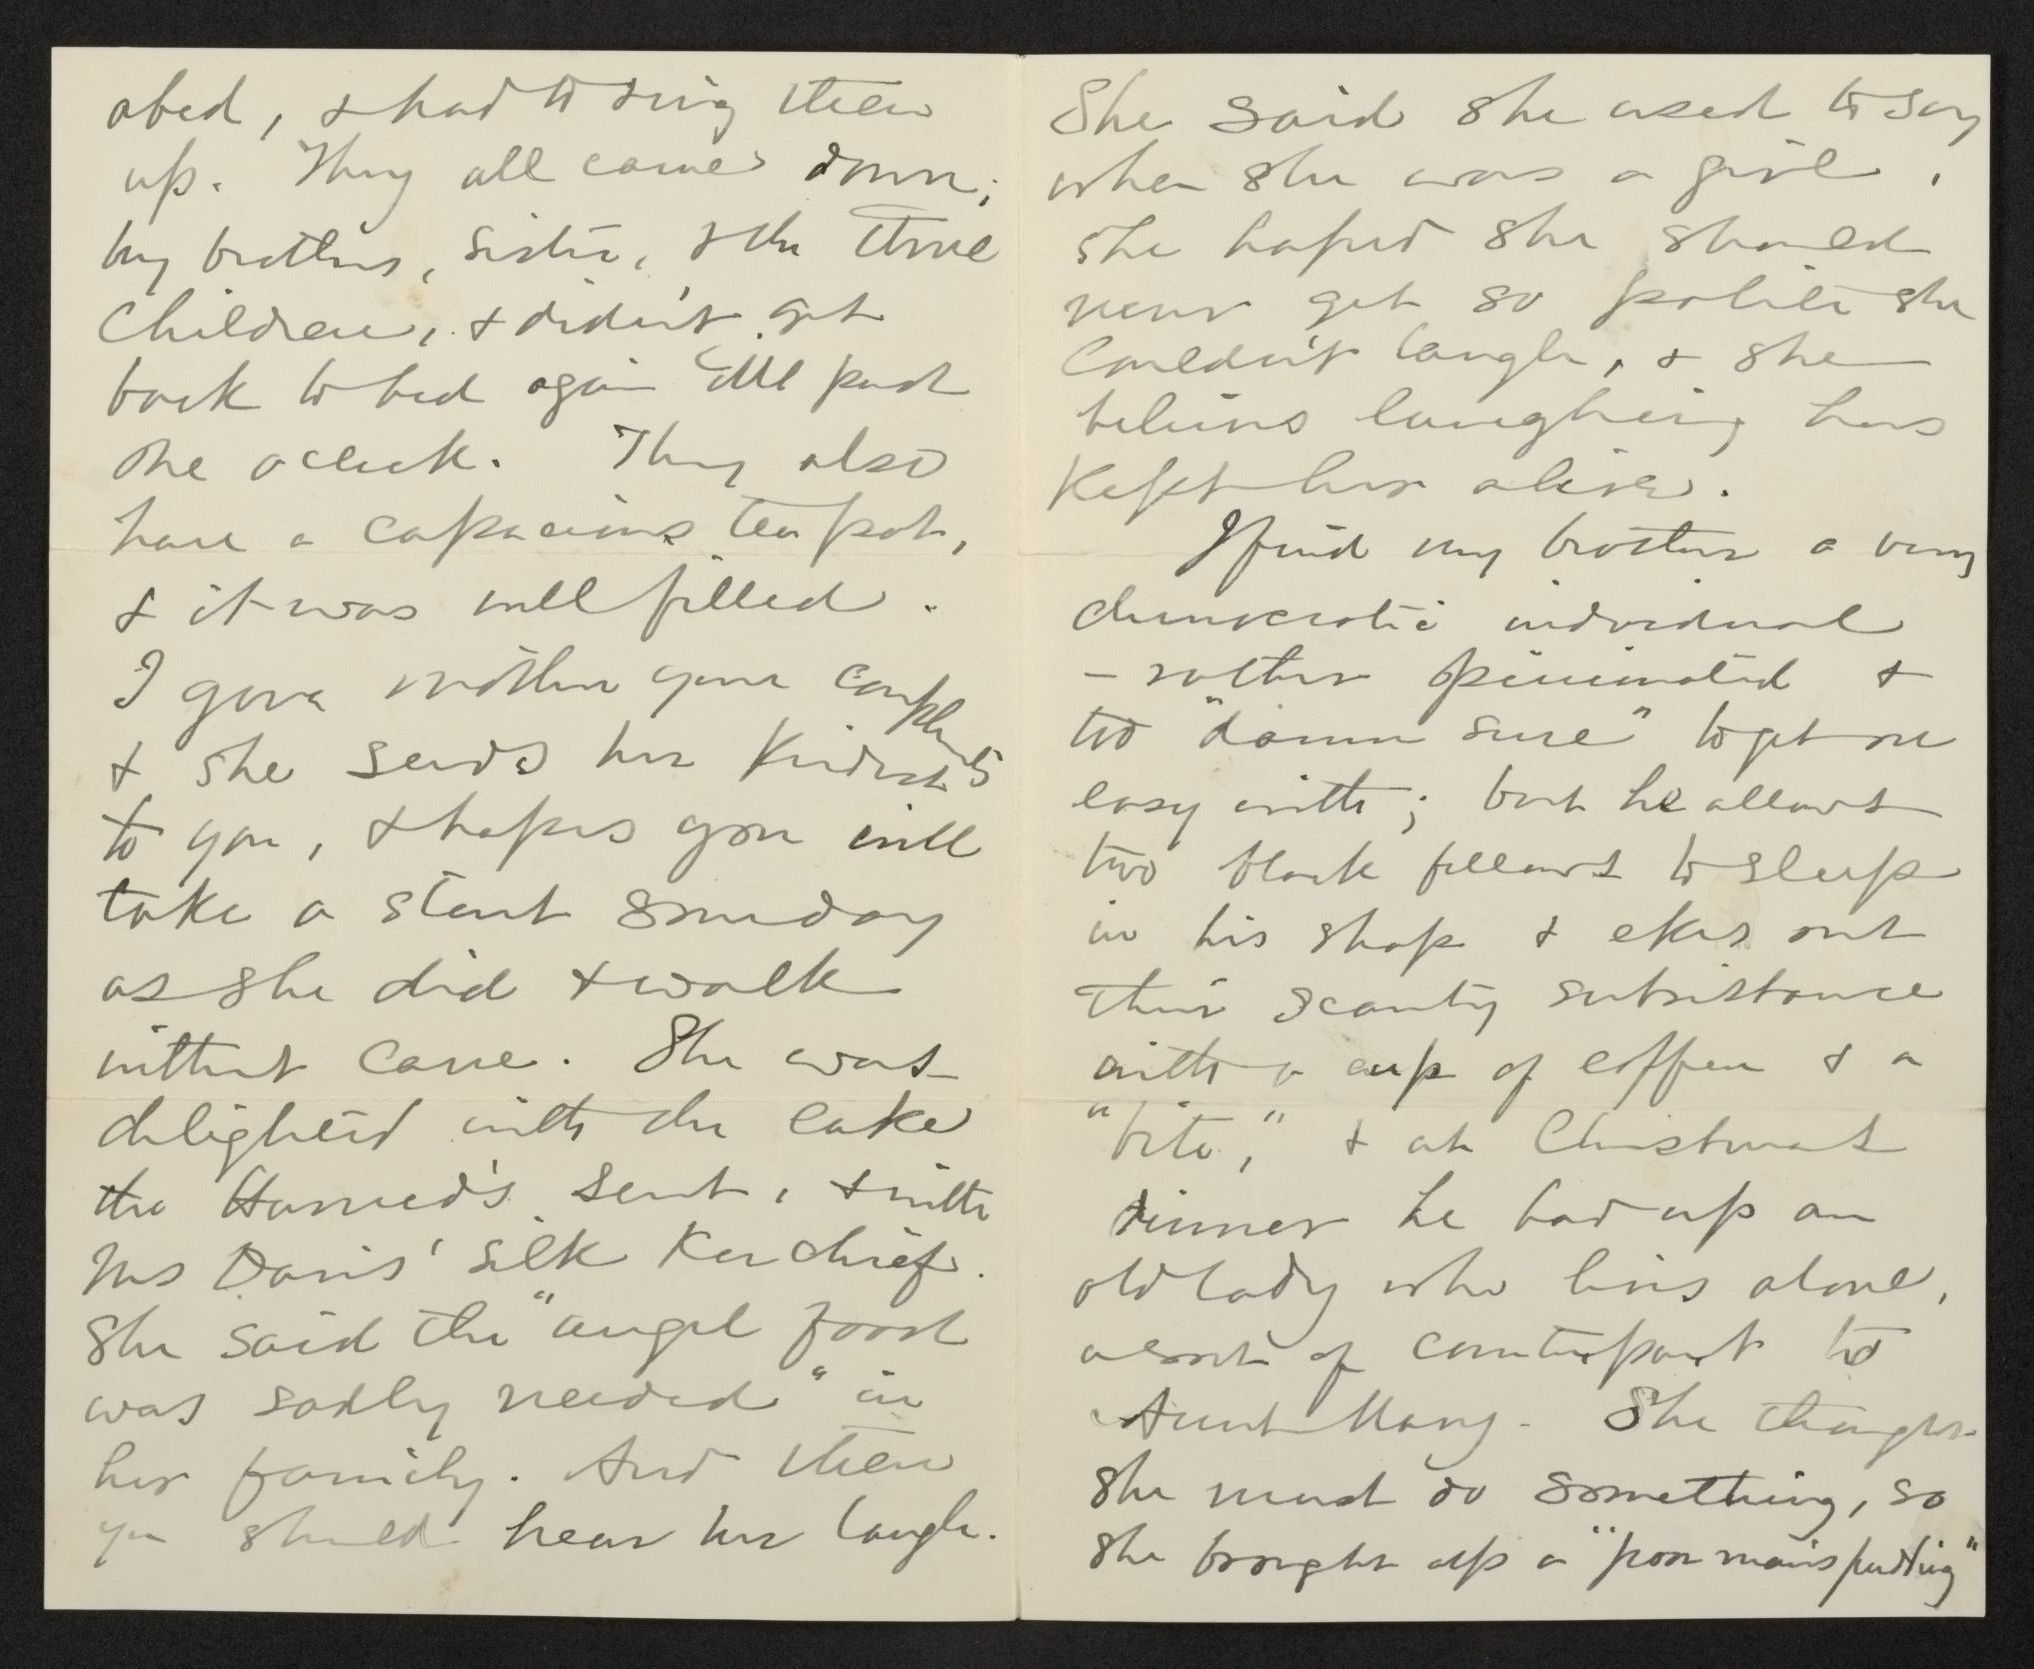 abed, & had to ring them
up. They all came down;
my brother, sister, & the three
children, & didn't get
back to bed again till past
one oclock. They also
have a capacious tea pot,
& it was well filled.
I gave mother your
& she sends her kindest
to you, & hopes you will
take a start someday
as she did & walk
without cane. She was
delighted with the cake
the Harned's sent, & with
Mrs Davis' silk Kerchief.
She said the "angel food
was sadly needed" in
her family. And then
you should hear her laugh.
She said she used to say
when she was a girl,
she hoped she should
never get so polite she
couldn't laugh, & she
believes laughing has
kept her alive.
I find my brother a very
democratic individual
– rather opinionated &
too "damn sure" to get on
easy with; but he allows
two black fellows to sleep
in his shop & ekes out
their scanty subsistance
with a cup of coffee & a
"bite," & at Christmas
dinner he had up an
old lady who lives alone,
a sort of counterpart to
Aunt Mary. She thought
she must do something, so
she brought up a "poor man's pudding"